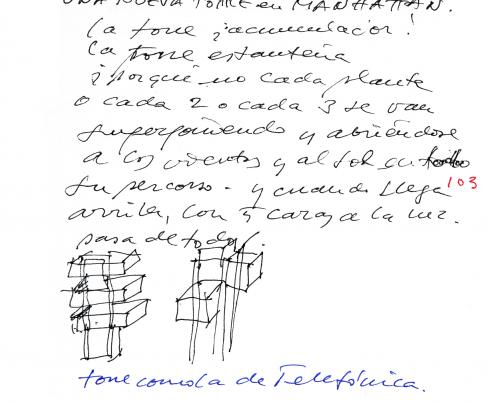 UNA NUEVA TORRE en MANHATTAN.
la torre ¡acumulador!
la torre estantería
¿porqué no cada planta
o cada 2 o cada 3 se van
superponiendo y abriéndose
a los vientos y al sol en
su percorso - y cuando llega
103
arriba, con 5 caras a la luz.
pasa de todo
torre como la de Telefónica.